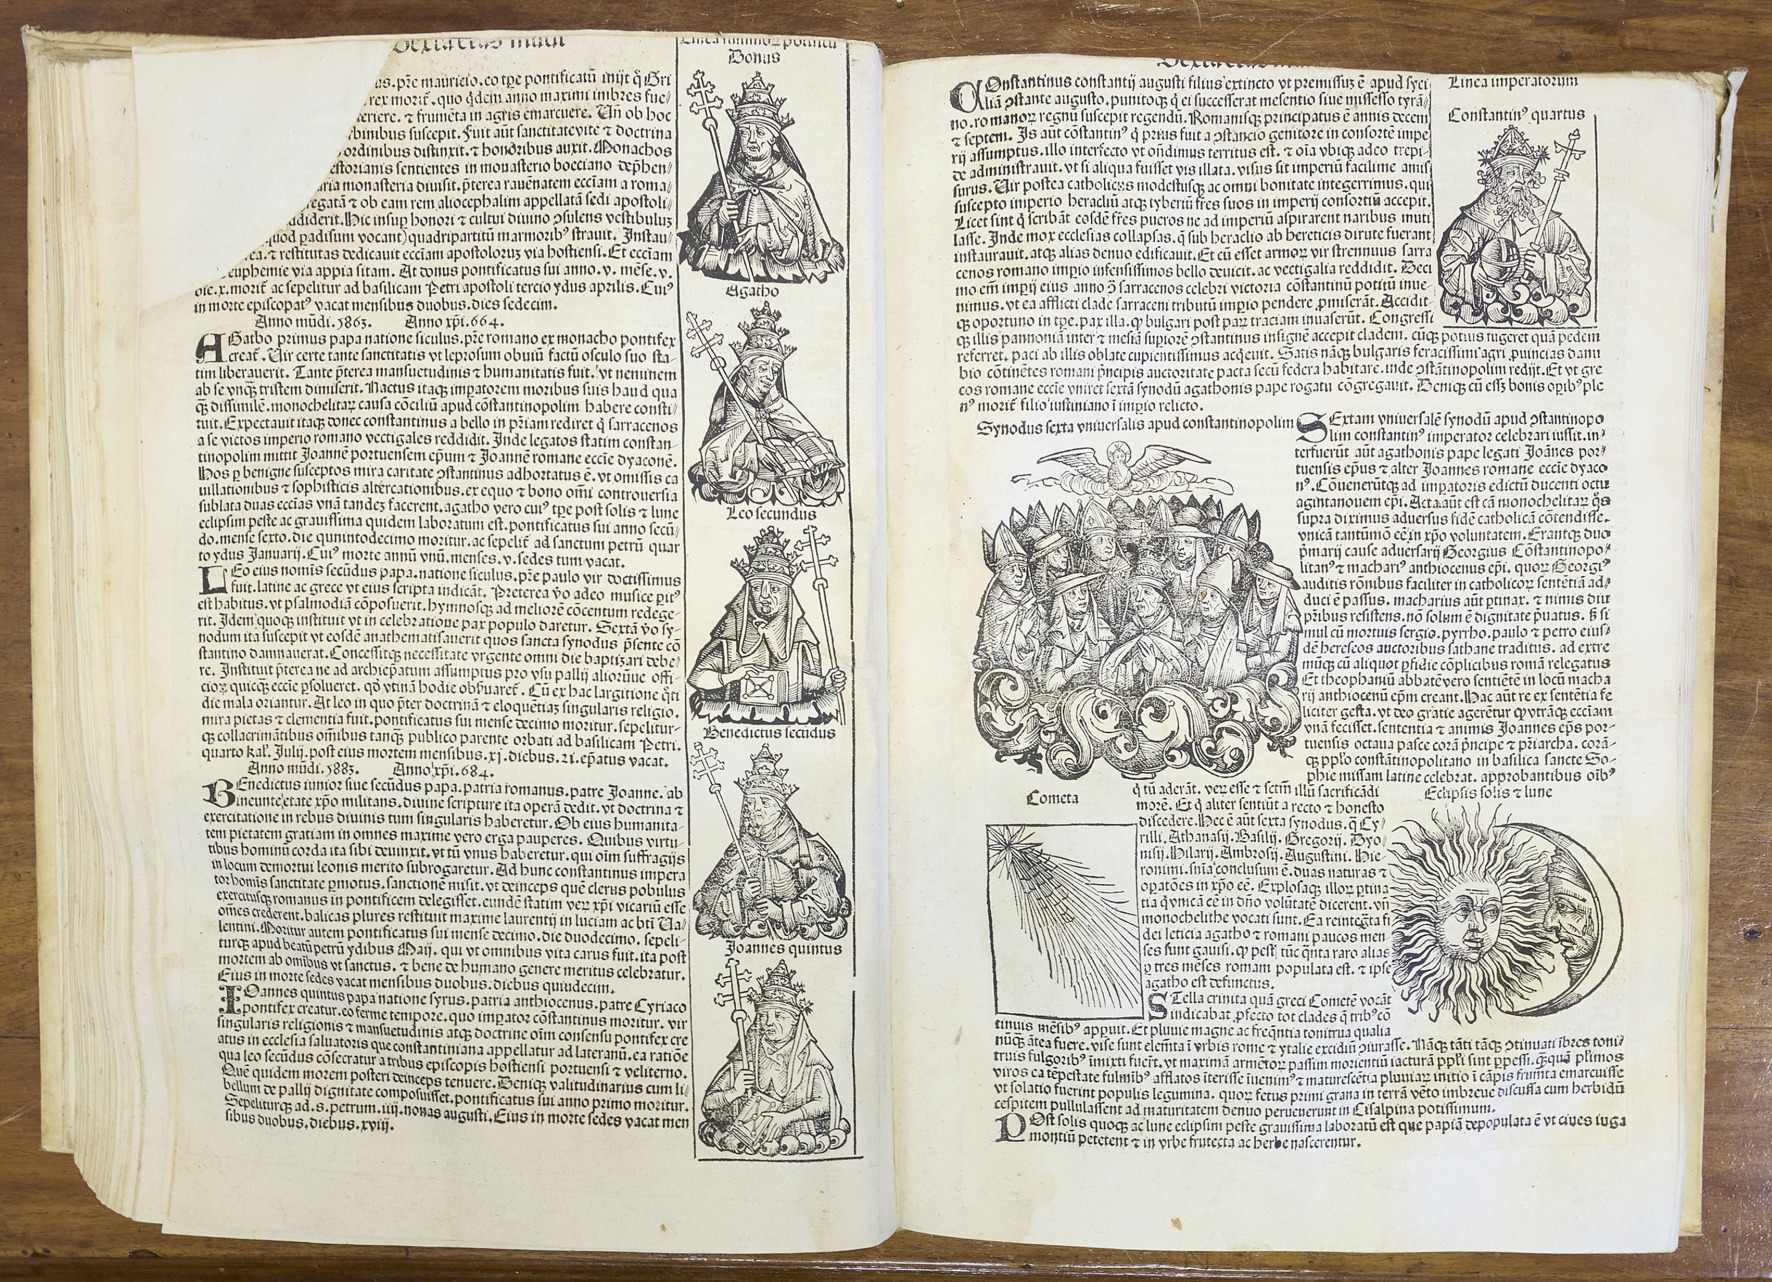 Sexta etas mũdi
Linea summoꝝ pontificũ
Donus
us. pr̃e mauricio. eo tꝑe pontificatũ inijt q̃ Gri
rex morit̃. quo q̃dem anno maximi imbres fue/
teriere. ⁊ frumẽta in agris emarcuere. Un̄ ob hoc
rbinibus suscepit. Fuit aũt sanctitatevite ⁊ doctrina
ordinibus distinxit. ⁊ honoribus auxit. Monachos
storianis sentientes in monasterio bocciano dep̃hen/
aria monasteria diuisit. p̃terea rauẽnatem ecc̃iam a roma/
regatã ⁊ ob eam rem aliocephalim appellatã sedi apostoli/
ddiderit. Hic insuꝑ honori ⁊ cultui diuino ꝯsulens vestibulũ
quod ꝑadisum vocant) quadripartitũ marmorib9 strauit. Instau/
rea. ⁊ restitutas dedicauit ecc̃iam apostoloꝝ via hostiensi. Et ecc̃iam
euphemie via appia sitam. At donus pontificatus sui anno. v. mẽse. v.
die. x. morit̃ ac sepelitur ad basilicam Petri apostoli tercio ydus aprilis. Cui9
in morte episcopat9 vacat mensibus duobus. dies sedecim.
Anno mũdi. 5863. Anno xp̃i. 664.
Agatho
AGatho primus papa natione siculus. pr̃e romano ex monacho pontifex
creat̃. Uir certe tante sanctitatis vt leprosum obuiũ factũ osculo suo sta-
tim liberauerit. Tante p̃terea mansuetudinis ⁊ humanitatis fuit. vt neminem
ab se vnq̃ tristem dimiserit. Nactus itaq̃ imꝑatorem moribus suis haud qua
q̃ dissimilẽ. monochelitaꝝ causa cõciliũ apud cõstantinopolim habere consti/
tuit. Expectauit itaq̃ donec constantinus a bello in pr̃iam rediret q̃ sarracenos
a se victos imperio romano vectigales reddidit. Inde legatos statim constan-
tinopolim mittit Joannẽ portuensem ep̃um ⁊ Joannẽ romane ecc̃ie dyaconẽ.
Hos ꝑ benigne susceptos mira caritate ꝯstantinus adhortatus ẽ. vt omissis ca
uillationibus ⁊ sophisticis altercationibus. ex equo ⁊ bono om̃i controuersia
sublata duas ecc̃ias vnã tandẽ facerent. agatho vero cui9 tꝑe post solis ⁊ lune
eclipsim peste ac grauissima quidem laboratum est. pontificatus sui anno secũ/
do. mense sexto. die quintodecimo moritur. ac sepelit̃ ad sanctum petrũ quar
to ydus Januarij. Cui9 morte annũ vnũ. menses. v. sedes tum vacat.
Leo secundus
LEo eius nomĩs secũdus papa. natione siculus. pr̃e paulo vir doctissimus
fuit. latine ac grece vt eius scripta indicãt. Preterea ṽo adeo musice ꝑit9
est habitus. vt psalmodiã cõposuerit. hymnosq̃ ad meliorẽ cõcentum redege-
rit. Idem quoq̃ instituit vt in celebratione pax populo daretur. Sextã ṽo sy-
nodum ita suscepit vt eosdẽ anathematisauerit quos sancta synodus p̃sente cõ
stantino damnauerat. Concessitq̃ necessitate vrgente omni die baptizari debe/
re. Instituit p̃terea ne ad archiep̃atum assumptus pro vsu pallij aliorũue offi-
cioꝝ quicq̃ ecc̃ie ꝑsolueret. qđ vtinã hodie obſuaret̃. Cũ ex hac largitione q̃ti
die mala oriantur. At leo in quo p̃ter doctrinã ⁊ eloquẽtiaꝫ singularis religio.
mira pietas ⁊ clementia fuit. pontificatus sui mense decimo moritur. sepelitur-
q̃ collacrimãtibus omnibus tanq̃ publico parente orbati ad basilicam Petri.
quarto kal̃. Julij. post eius mortem mensibus. xj. diebus. 21. ep̃atus vacat.
Anno mũdi. 5883. Anno xp̃i. 684.
Benedictus secũdus
BEnedictus iunior siue secũdus papa. patria romanus. patre Joanne. ab
ineunte etate xp̃o militans. diuine scripture ita operã dedit. vt doctrina ⁊
exercitatione in rebus diuinis tum singularis haberetur. Ob eius humanita-
tem pietatem gratiam in omnes maxime vero erga pauperes. Quibus virtu-
tibus hominũ corda ita sibi deuinxit. vt tũ vnus haberetur. qui oĩm suffragijs
in locum demortui leonis merito subrogaretur. Ad hunc constantinus impera
tor homĩs sanctitate ꝑmotus. sanctionẽ misit. vt deinceps quẽ clerus populus
exercitusq̃ romanus in pontificem delegisset. eundẽ statim veꝝ xp̃i vicariũ esse
om̃es crederent. basilicas plures restituit maxime laurentij in luciam ac bt̃i Va/
lentini. Moritur autem pontificatus sui mense decimo. die duodecimo. sepeli-
turq̃ apud beatũ petrũ ydibus Maij. qui vt omnibus vita carus fuit. ita post
mortem ab om̃ibus vt sanctus. ⁊ bene de humano genere meritus celebratur.
Eius in morte sedes vacat mensibus duobus. diebus quindecim.
Joannes quintus
IOannes quintus papa natione syrus. patria anthiocenus. patre Cyriaco
pontifex creatur. eo ferme tempore. quo imꝑator cõstantinus moritur. vir
singularis religionis ⁊ mansuetudinis atq̃ doctrine oĩm consensu pontifex cre
atus in ecclesia saluatoris que constantiniana appellatur ad lateranũ. ea ratiõe
qua leo secũdus cõsecratur a tribus episcopis hostiensi portuensi ⁊ veliterno.
Quẽ quidem morem posteri deinceps tenuere. Deniq̃ valitudinarius cum li-
bellum de pallij dignitate composuisset. pontificatus sui anno primo moritur.
Sepeliturq̃ ad. s. petrum. iiij. nonas augusti. Eius in morte sedes vacat men
sibus duobus. diebus. xviij.
Linea imperatorum
Constantin9 quartus
COnstantinus constantij augusti filius extincto vt premissuꝫ ẽ apud syci-
liã ꝯstante augusto. punitoq̃ q̃ ei successerat mesentio siue missesso tyrã/
no. romanoꝝ regnũ suscepit regendũ. Romanisq̃ principatus ẽ annis decem
⁊ septem. Is aũt cõstantin9 q̃ prius fuit a ꝯstancio genitore in consortẽ impe
rij assumptus. illo interfecto vt oñdimus territus est. ⁊ oĩa vbiq̃ adeo trepi-
de administrauit. vt si aliqua fuisset vis illata. visus sit imperiũ facilime amis
surus. Uir postea catholicus modestusq̃ ac omni bonitate integerrimus. qui
suscepto imperio heracliũ atq̃ tyberiũ fr̃es suos in imperij consortiũ accepit.
Licet sint q̃ scribãt eosdẽ fr̃es pueros ne ad imperiũ aspirarent naribus muti
lasse. Inde mox ecclesias collapsas. q̃ sub heraclio ab hereticis dirute fuerant
instaurauit. atq̃ alias denuo edificauit. Et cũ esset armoꝝ vir strennuus sarra
cenos romano imꝑio infensissimos bello deuicit. ac vectigalia reddidit. Deci
mo em̃ imꝑij eius anno ꝯ̃ sarracenos celebri victoria cõstantinũ potitũ inue-
nimus. vt ea afflicti clade sarraceni tributũ imꝑio pendere ꝓmiserãt. Accidit
q̃ oportuno in tꝑe. pax illa. qꝫ bulgari post paꝝ traciam inuaserũt. Congressi
q̃ illis pannoniã inter ⁊ mesiã supiorẽ ꝯstantinus insignẽ accepit cladem. cũq̃ potius fugeret quã pedem
referret. paci ab illis oblate cupientissimus acq̃euit. Satis nãq̃ bulgaris feracissimi agri ꝓuincias danu
bio cõtinẽtes romani p̃ncipis auctoritate pacta secũ federa habitare. inde ꝯstãtinopolim redijt. Et vt gre
cos romane ecc̃ie vniret sextã synodũ agathonis pape rogatu cõgregauit. Deniq̃ cũ ess̃ bonis oꝑib9 ple
n9 morit̃ filio iustiniano ĩ imꝑio relicto.
Synodus sexta vniuersalis apud constantinopolim
SExtam vniuersalẽ synodũ apud ꝯstantinopo
lim constantin9 imperator celebrari iussit. in-
terfuerũt aũt agathonis pape legati Joãnes por-
tuensis ep̃us ⁊ alter Joannes romane ecc̃ie dyaco
n9. Cõuenerũtq̃ ad imꝑatoris edictũ ducenti octu
agintanouem ep̃i. Acta aũt est cã monochelitaꝝ q̃s
supra diximus aduersus fidẽ catholicã cõtendisse.
vnicã tantũmõ eẽ in xp̃o voluntatem. Erantq̃ duo
p̃marij cause aduersarij Georgius Cõstantinopo-
litan9 ⁊ machari9 anthiocenus ep̃i. quoꝝ Georgi9
auditis rõnibus faciliter in catholicoꝝ sentẽtiã ad/
duci ẽ passus. macharius aũt ꝑtinax. ⁊ nimis diu
pr̃ibus resistens. nõ solum ẽ dignitate p̃uatus. s̃ si
mul cũ mortuis sergio. pyrrho. paulo ⁊ petro eius-
dẽ hereseos auctoribus sathane traditus. ad extre
mũq̃ cũ aliquot ꝑfidie cõplicibus romã relegatus
Et theophaniũ abbatẽ vero sentiẽtẽ in locũ macha
rij anthiocenũ ep̃m creant. Hac aũt re ex sentẽtia fe
liciter gesta. vt deo gratie agerẽtur qꝫ vtrãq̃ ecc̃iam
vnã fecisset. sententia ⁊ animis Joannes ep̃s por-
tuensis octaua pasce corã p̃ncipe ⁊ p̃riarcha. corã-
q̃ pp̃lo constãtinopolitano in basilica sancte So-
phie missam latine celebrat. approbantibus oĩb9
q̃ tũ aderãt. veꝝ esse ⁊ sctũm illũ sacrificãdi
morẽ. Et q̃ aliter sentiũt a recto ⁊ honesto
discedere. Hec ẽ aũt sexta synodus. q̃ Cy-
rilli. Athanasij. Basilij. Gregorij. Dyo-
nisij. Hilarij. Ambrosij. Augustini. Hie-
ronimi. sñia conclusum ẽ. duas naturas ⁊
oꝑatões in xp̃o eẽ. Explosaq̃ illoꝝ ꝑtina
tia q̃ vnicã eẽ in dño volũtatẽ dicerent. vñ
monochelithe vocati sunt. Ea reintegrata fi
dei leticia agatho ⁊ romani paucos men
ses sunt gauisi. qꝫ pest̃ tũc q̃nta raro alias
ꝑ tres mẽses romam populata est. ⁊ ipse
agatho est defunctus.
Cometa
Eclipsis solis ⁊ lune
STella crinita quã greci Cometẽ vocãt
indicabat ꝓfecto tot clades q̃ trib9 cõ
tinuis mẽsib9 apꝑuit. Et pluuie magne ac freq̃ntia tonitrua qualia
nũq̃ ãtea fuere. vise sunt elemẽta ĩ vrbis rome ⁊ ytalie excidiũ ꝯiurasse. Nãq̃ tãti tãq̃ ꝯtinuati ĩbres toni-
truis fulgorib9 ĩmixti fuer̃t. vt maximã armẽtoꝝ passim morientiũ iacturã pp̃li sint ꝑpessi. q̃quã pl̃imos
viros ea tẽpestate fulmĩb9 afflatos ĩterisse ĩuenim9 ⁊ maturescẽtia pluuiaꝝ initio ĩ cãpis frumẽta emarcuisse
vt solatio fuerint populis legumina. quoꝝ fetus primi grana in terrã vẽto imbreue discussa cum herbidũ
cespitem pullulassent ad maturitatem denuo peruenerunt in Cisalpina potissimum.
POst solis quoq̃ ac lune eclipsim peste grauissima laboratũ est que papiã depopulata ẽ vt ciues iuga
montiũ petetent ⁊ in vrbe frutecta ac herbe nascerentur.